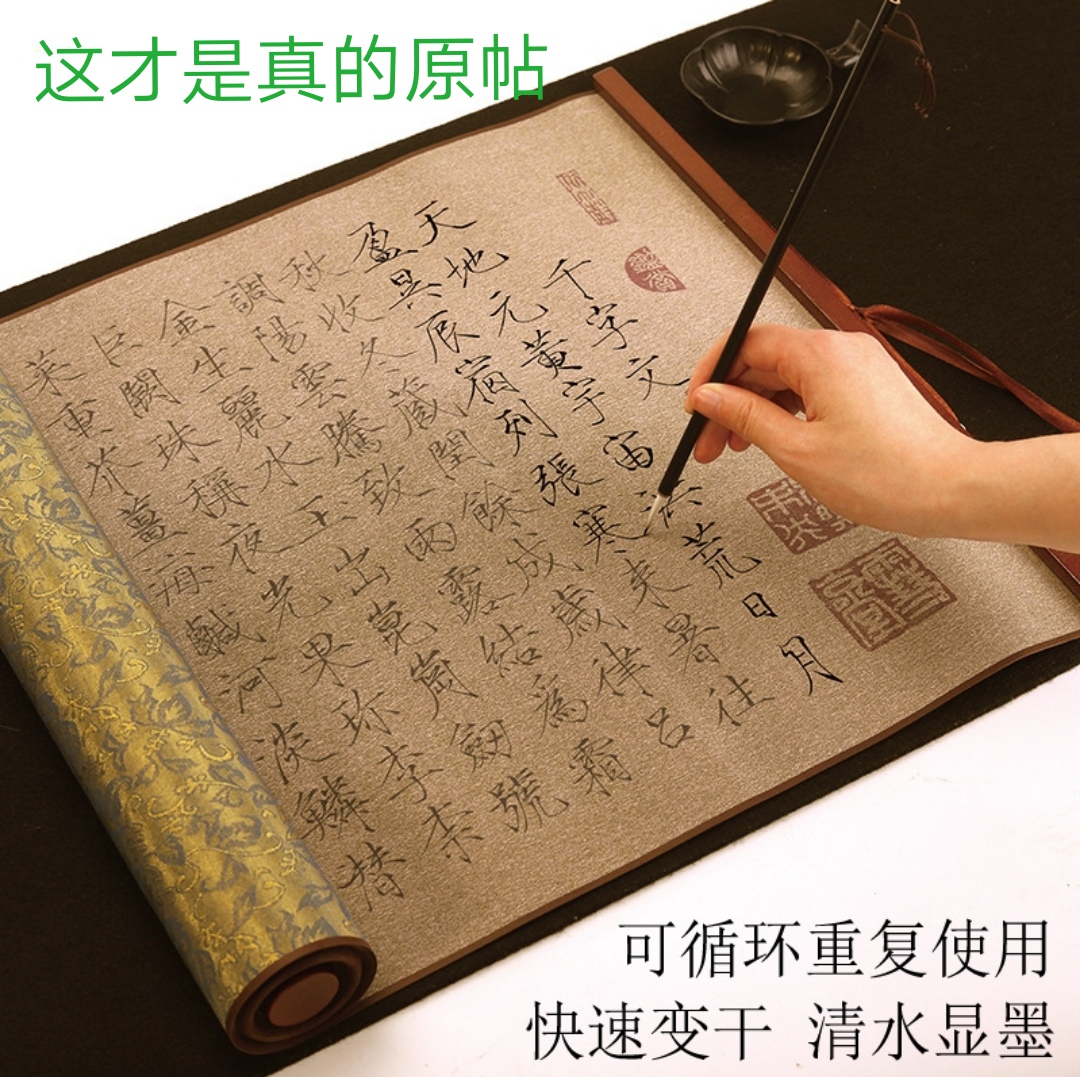 这才是真的原帖
千字文
天地元黃宇宙洪荒日月
盈昃辰宿列張寒来暑往
秋收冬藏閏餘成歲律吕
調陽雲騰致雨露結為霜
金生麗水玉出崑崗劒號
巨闕珠稱夜光果珎李柰
菜重芥薑海鹹河淡鱗潜
可循环重复使用
快速变干 清水显墨